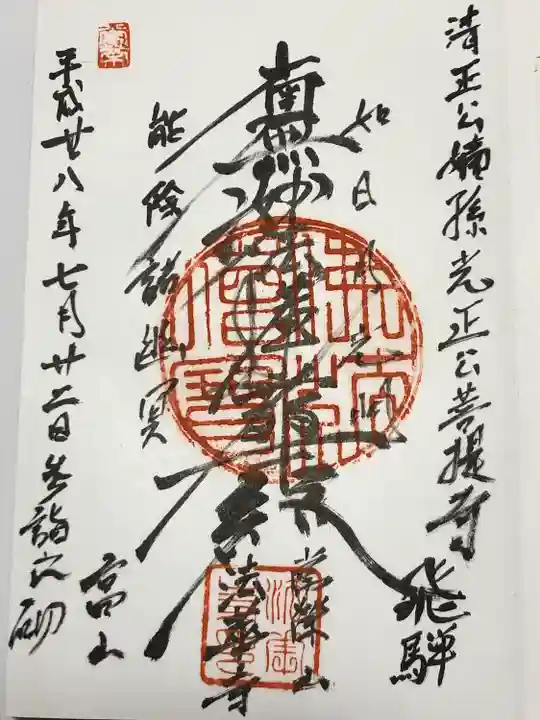 清正公嫡孫光正公菩提寺
飛騨
如日月光明
南無妙法蓮華経
能除諸幽冥
高山
法華寺
平成廿八年七月廿二日参詣之砌